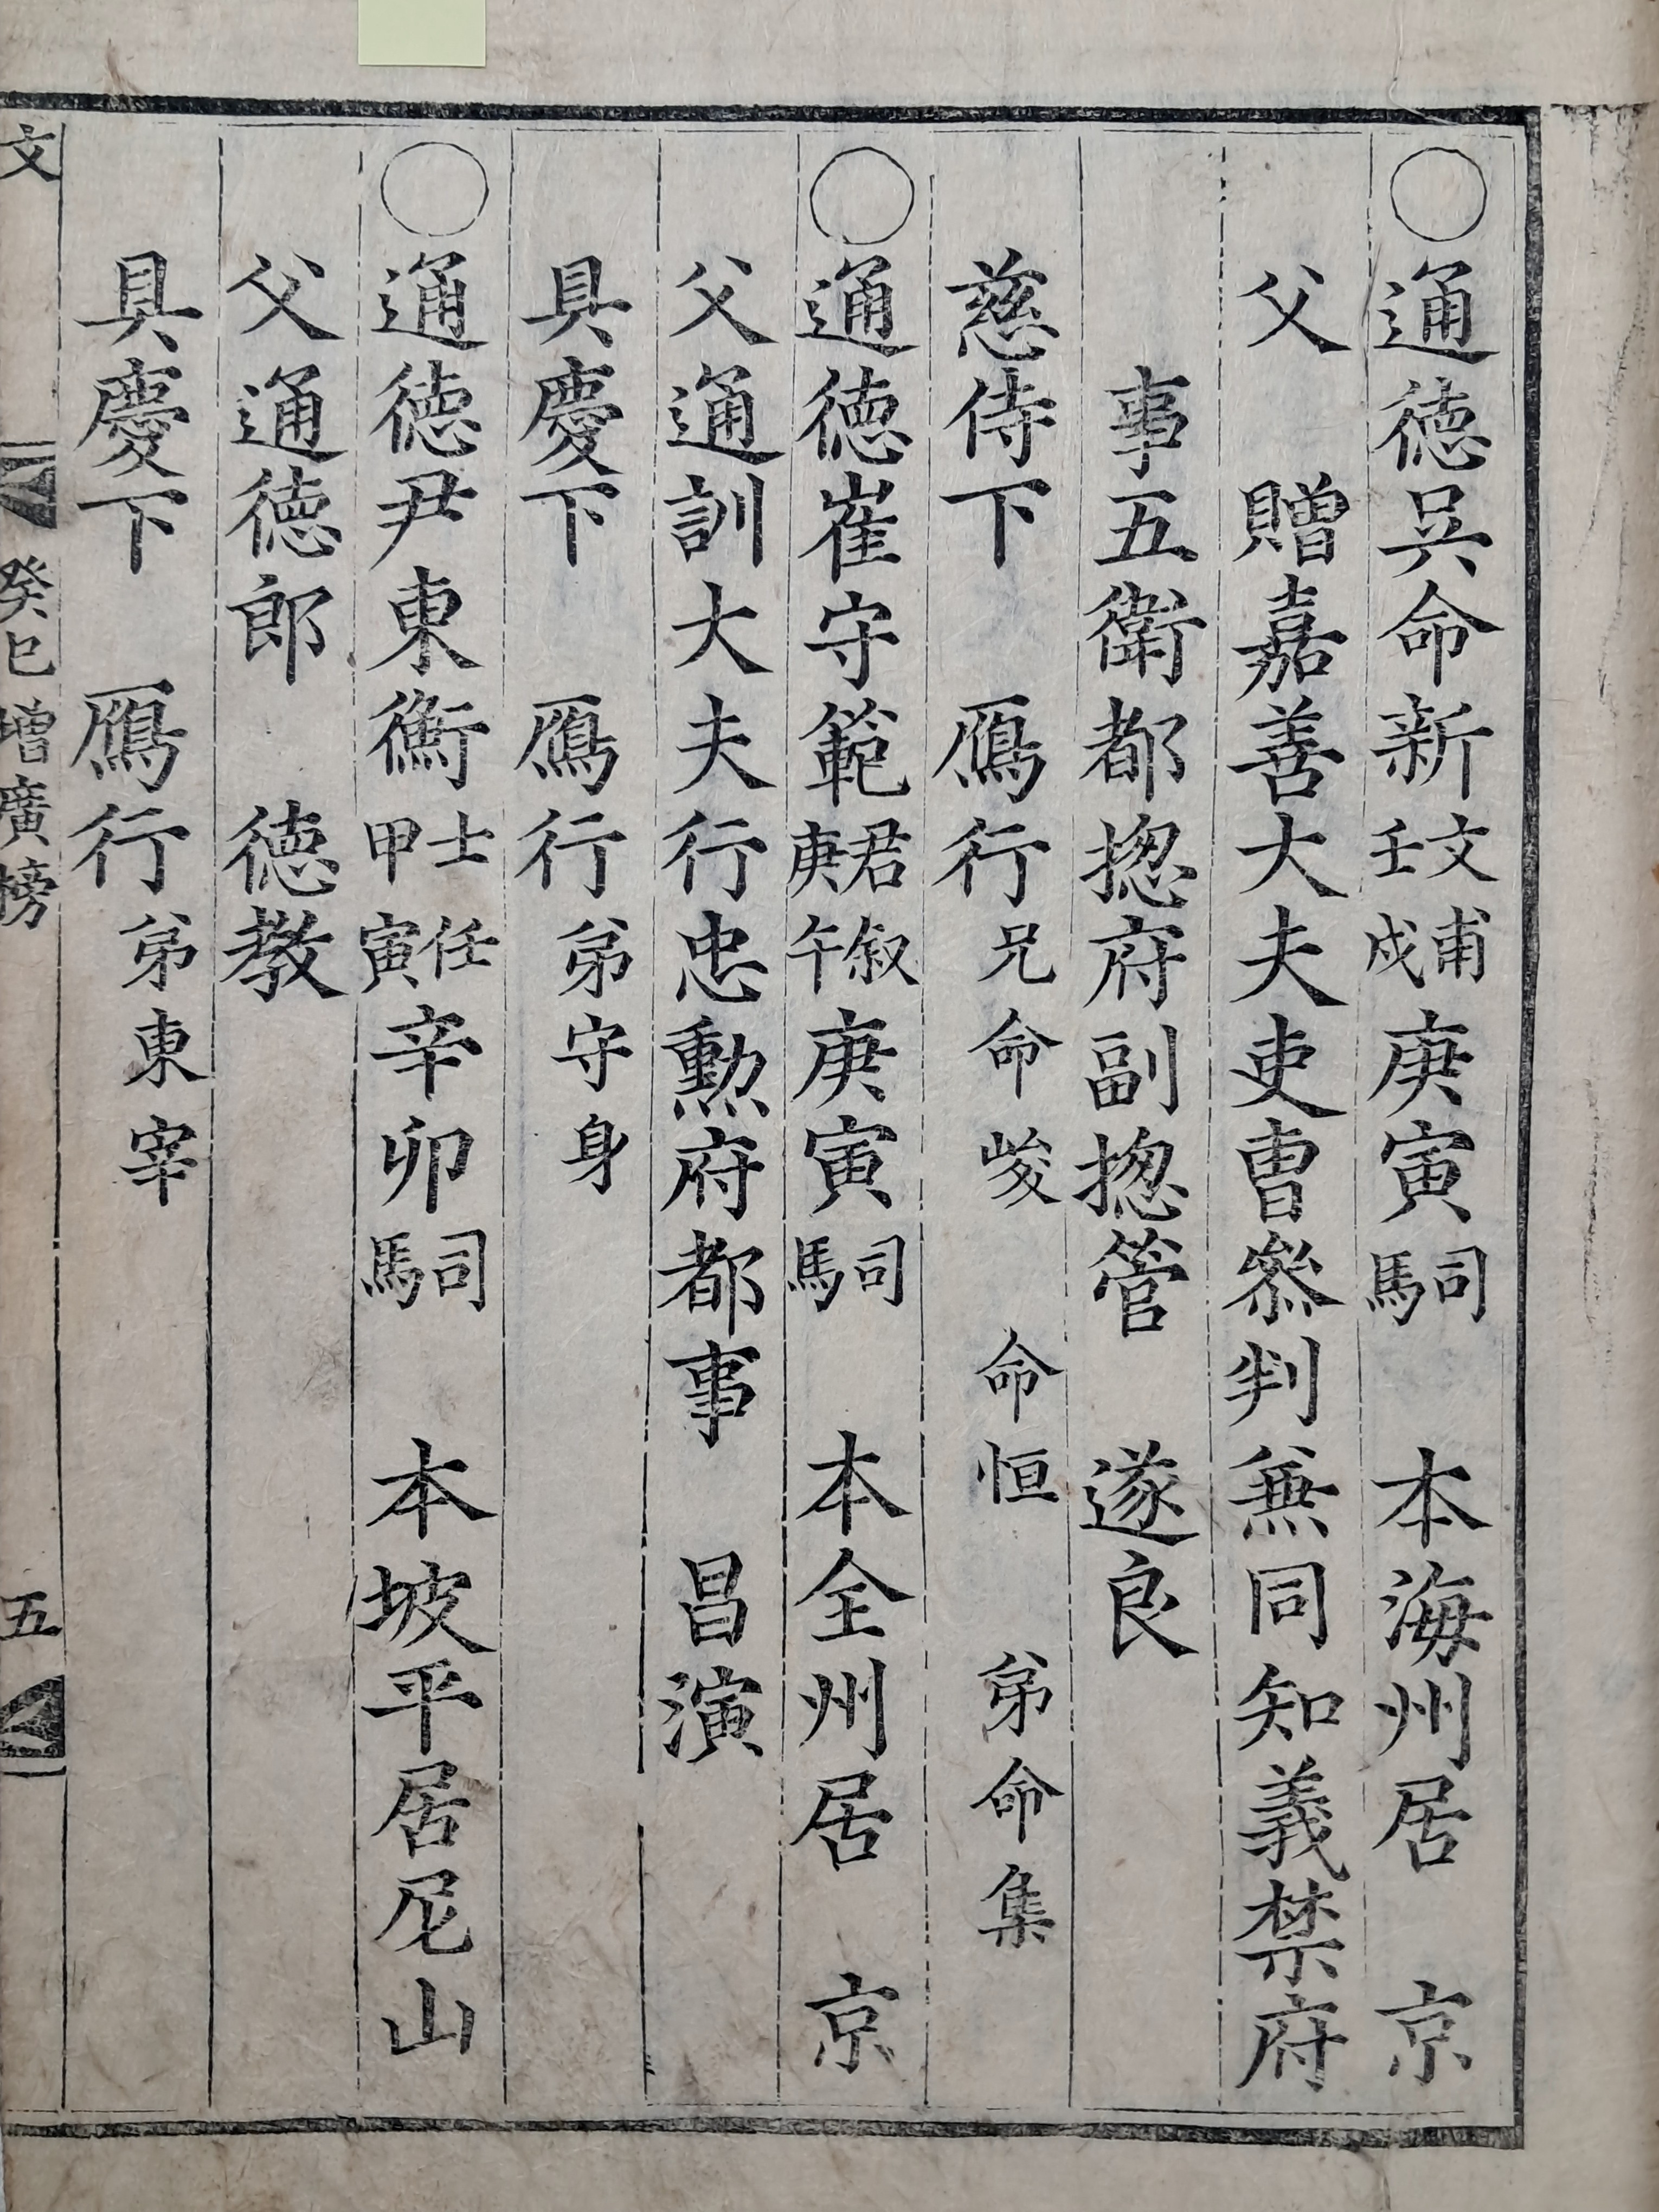 ○通德吳命新文甫壬戌庚寅司馬 本海州居 京
父 贈嘉善大夫吏曹叅判兼同知義禁府
事五衛都揔府副揔管 遂良
慈侍下 鴈行兄命峻 命恒 弟命集
○通德崔守範君叙庚午庚寅司馬 本全州居 京
父通訓大夫行忠勳府都事 昌演
具慶下 鴈行弟守身
○通德尹東衡士任甲寅辛卯司馬 本坡平居尼山
父通德郎 德教
具慶下 鴈行弟東宰
文 癸巳增廣榜 五